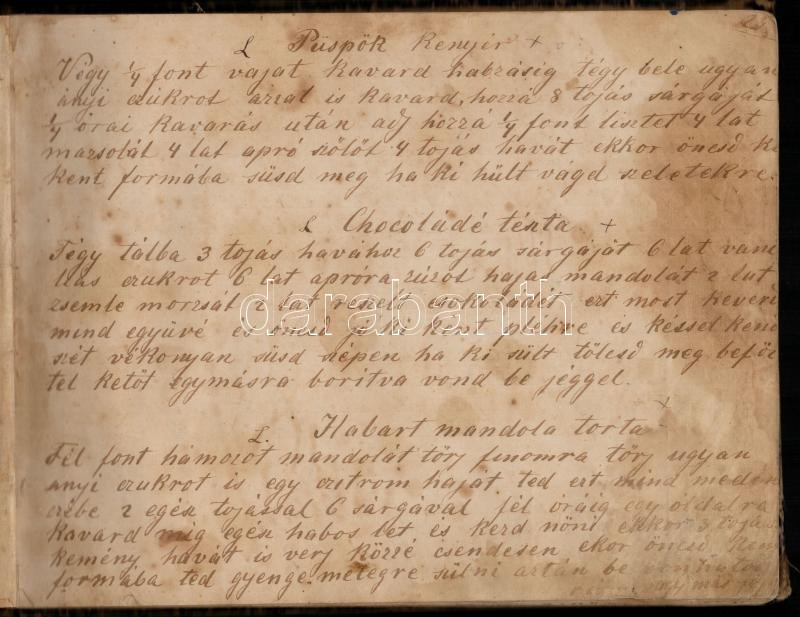 L Püspök kenyir +
Végy 1/4 font vajat kavard habzásig tégy bele ugyan
anyi czukrot azzal is kavard, hozzá 8 tojás sárgáját
1/4 órai kavarás után adj hozzá 1/4 font lisztet 4 lat
mazsolát 4 lat apró szőlőt 4 tojás havát ekkor öncsd ki
kent formába süsd meg ha ki hült vágd szeletekre.
L Chocoládé tészta +
Tégy tálba 3 tojás havához 6 tojás sárgáját 6 lat vani
liás czukrot 6 lat apróra zúzót hajas mandolát 2 lat
zsemle morzsát 2 lat reszelt csokoládét ezt most keverd
mind együvé és öncsd ki kent pléhre és késsel kend
szét vékonyan süsd szépen ha ki sült töltsd meg beföt
tel ketöt egymásra borítva vond be jéggel.
L. Habart mandola torta +
Fél font hámozót mandolát törj finomra törj ugyan
anyi czukrot is egy czitrom hajat ted ezt mind meden
czébe 2 egész tojással 6 sárgával fél óráig egy oldalra
kavard mig egész habos let és kezd nöni ekkor 3 tojás
kemény havát is verj közzé csendesen ekor öncsd kent
formába ted gyenge melegre sülni aztán be
darabanth